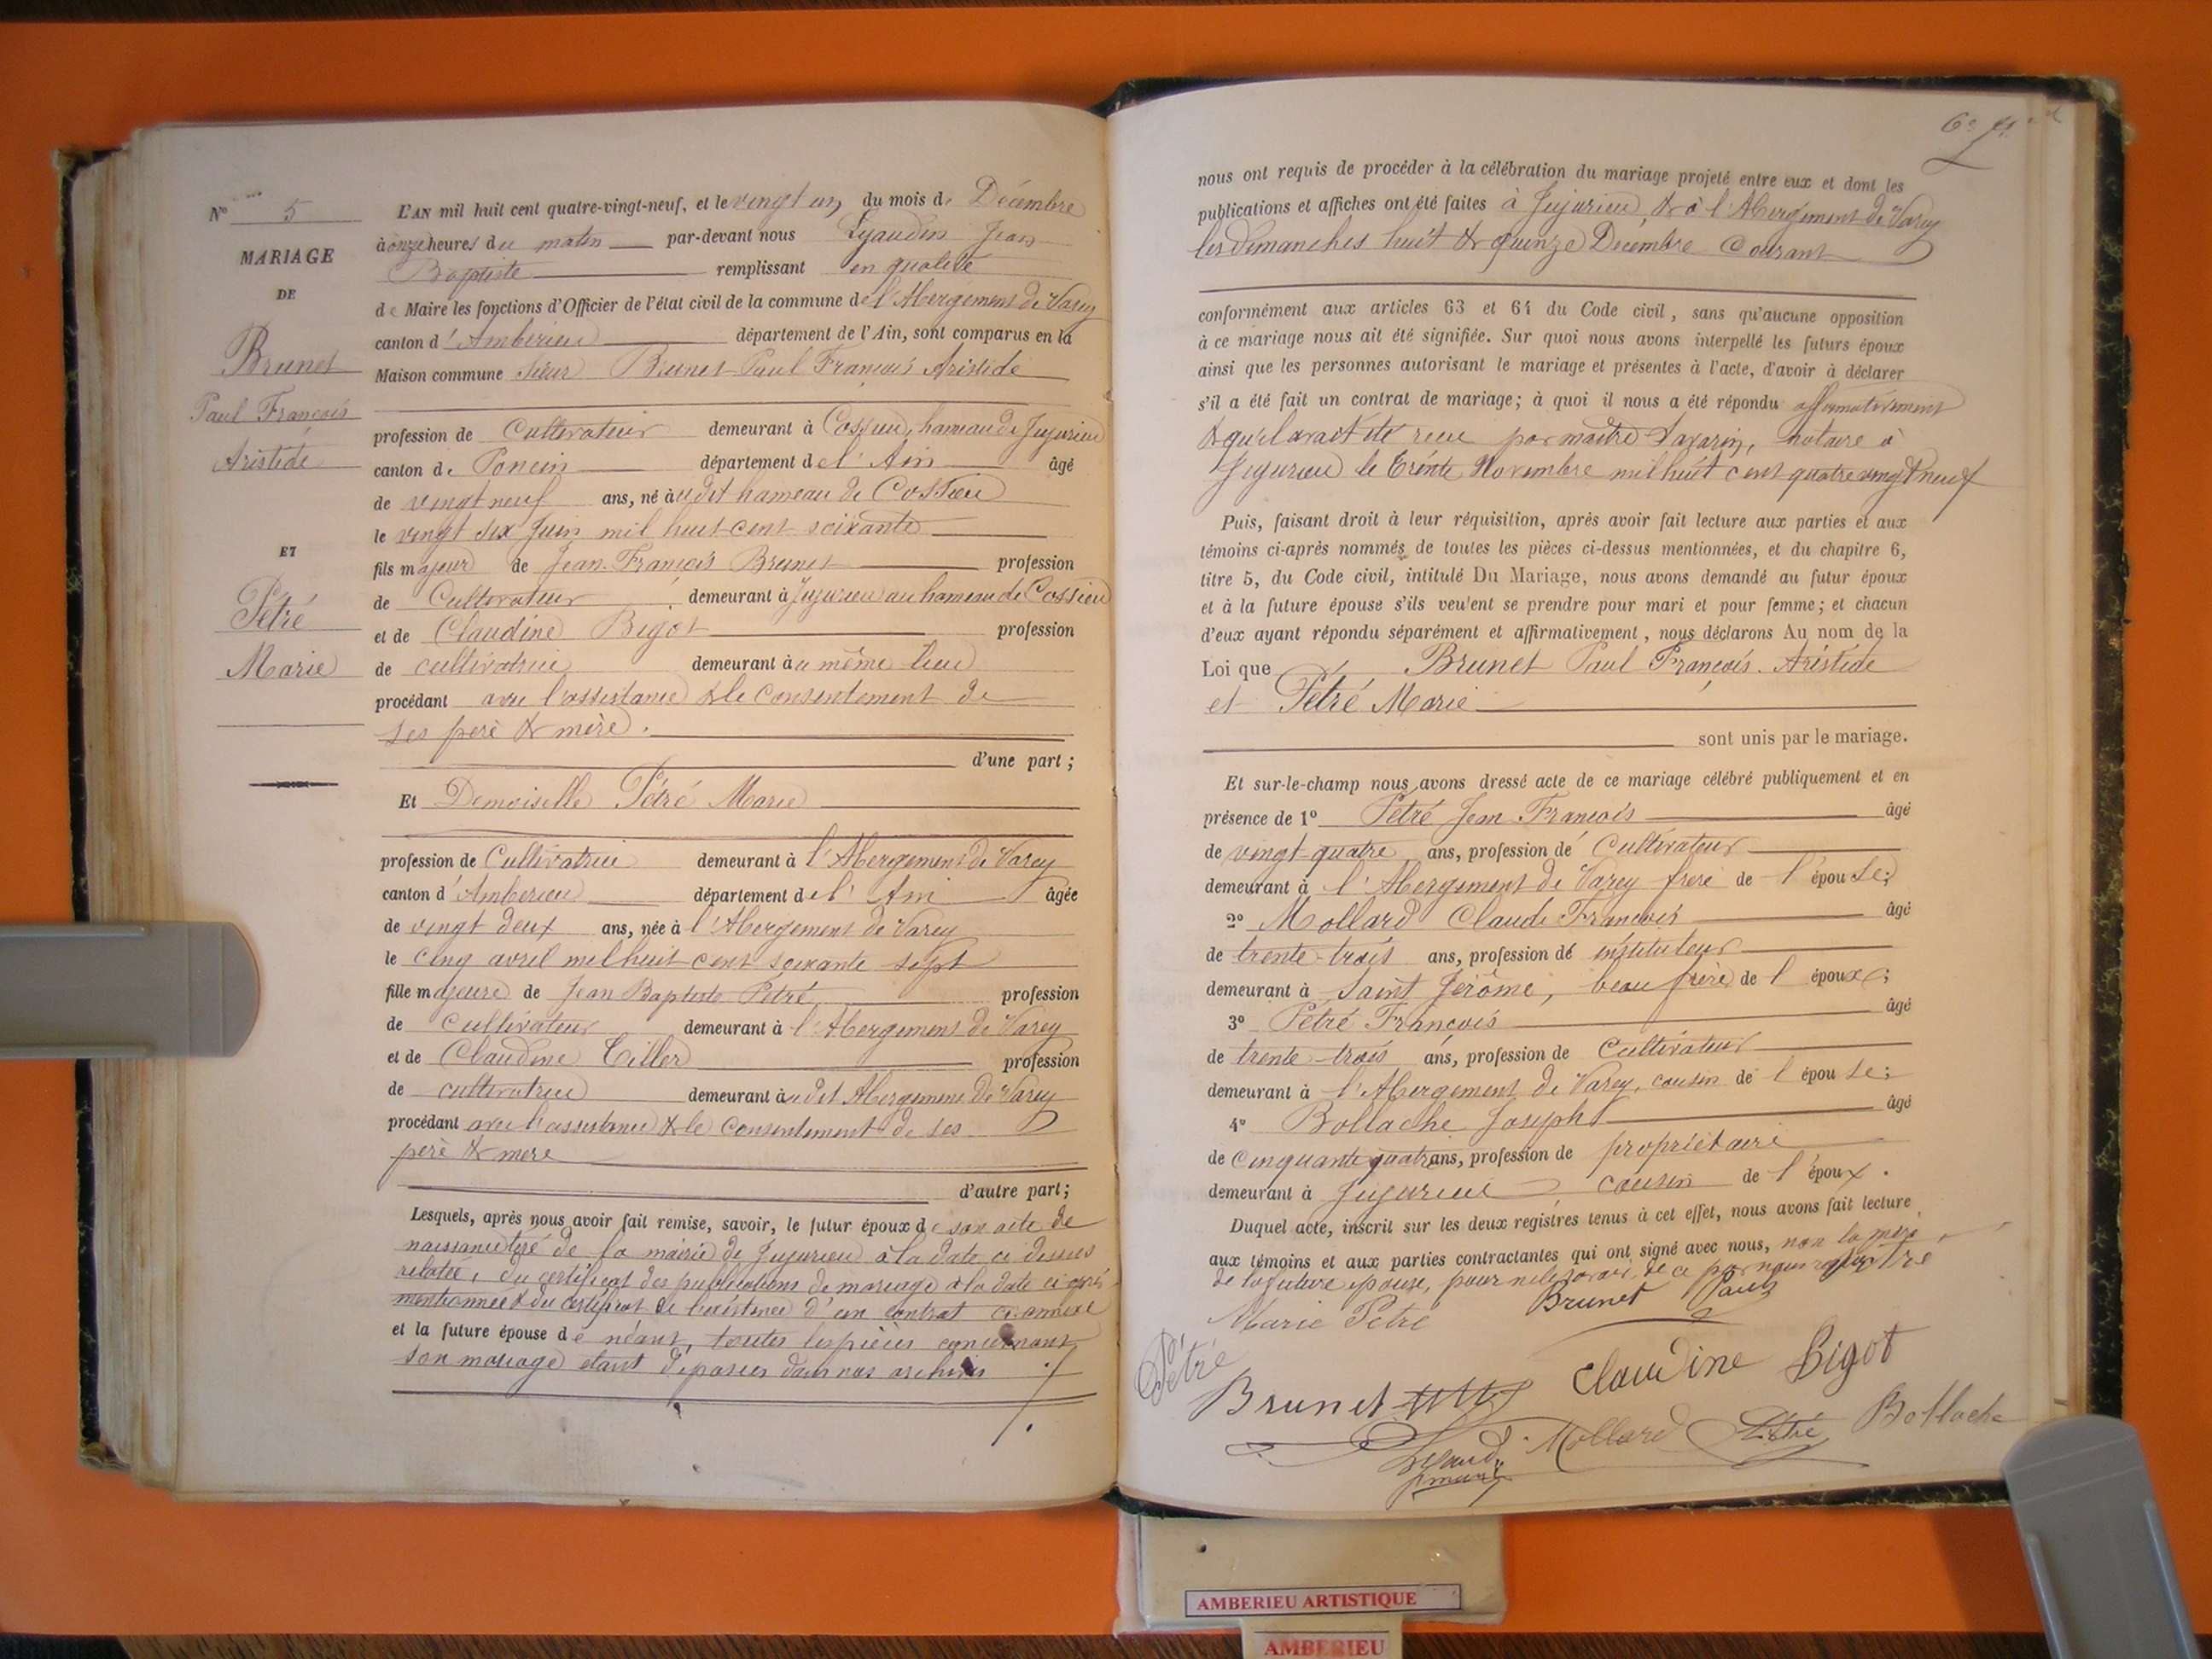 N° 5
MARIAGE
DE
Brunet
Paul François
Aristide
ET
Pétré
Marie
L'AN mil huit cent quatre-vingt-neuf, et le vingt un du mois de Décembre
à onze heures du matin par-devant nous Lyaudin Jean
Baptiste remplissant en qualité
de Maire les fonctions d'Officier de l'état civil de la commune de l'Abergement de Varey
canton d'Ambérieu département de l'Ain, sont comparus en la
Maison commune Sieur Brunet Paul François Aristide
profession de Cultivateur demeurant à Cossieu, hameau de Jujurieu
canton de Poncin département de l'Ain âgé
de vingt neuf ans, né audit hameau de Cossieu
le vingt six Juin mil huit cent soixante
fils majeur de Jean François Brunet profession
de Cultivateur demeurant à Jujurieu au hameau de Cossieu
et de Claudine Bigot profession
de cultivatrice demeurant au même lieu
procédant avec l'assistance & le consentement de
ses père & mère.
d'une part;
Et Demoiselle Pétré Marie
profession de Cultivatrice demeurant à l'Abergement de Varey
canton d'Ambérieu département de l'Ain âgée
de vingt deux ans, née à l'Abergement de Varey
le cinq avril mil huit cent soixante sept
fille majeure de Jean Baptiste Pétré profession
de Cultivateur demeurant à l'Abergement de Varey
et de Claudine Tiller profession
de cultivatrice demeurant audit Abergement de Varey
procédant avec l'assistance & le consentement de ses
père & mère
d'autre part;
Lesquels, après nous avoir fait remise, savoir, le futur époux de son acte de
naissance tiré de la mairie de Jujurieu à la date ci dessus
relatée, du certificat des publications de mariage à la date ci après
mentionnée & du certificat de l'existence d'un contrat ci annexé
et la future épouse de néant, toutes les pièces concernant
son mariage étant déposées dans nos archives
nous ont requis de procéder à la célébration du mariage projeté entre eux et dont les
publications et affiches ont été faites à Jujurieu & à l'Abergement de Varey
les dimanches huit & quinze Décembre Courant
conformément aux articles 63 et 64 du Code civil, sans qu'aucune opposition
à ce mariage nous ait été signifiée. Sur quoi nous avons interpellé les futurs époux
ainsi que les personnes autorisant le mariage et présentes à l'acte, d'avoir à déclarer
s'il a été fait un contrat de mariage; à quoi il nous a été répondu affirmativement
& qu'il avait été reçu par maître Savarin, notaire à
Jujurieu le trente Novembre mil huit cent quatre vingt neuf
Puis, faisant droit à leur réquisition, après avoir fait lecture aux parties et aux
témoins ci-après nommés de toutes les pièces ci-dessus mentionnées, et du chapitre 6,
titre 5, du Code civil, intitulé Du Mariage, nous avons demandé au futur époux
et à la future épouse s'ils veulent se prendre pour mari et pour femme; et chacun
d'eux ayant répondu séparément et affirmativement, nous déclarons Au nom de la
Loi que Brunet Paul François Aristide
et Pétré Marie
sont unis par le mariage.
Et sur-le-champ nous avons dressé acte de ce mariage célébré publiquement et en
présence de 1° Pétré Jean François âgé
de vingt quatre ans, profession de Cultivateur
demeurant à l'Abergement de Varey frère de l'épouse;
2° Mollard Claude François âgé
de trente-trois ans, profession de instituteur
demeurant à Saint Jérôme, beau frère de l'époux;
3° Pétré François âgé
de trente-trois ans, profession de Cultivateur
demeurant à l'Abergement de Varey, cousin de l'épouse;
4° Bollache Joseph âgé
de cinquante quatre ans, profession de propriétaire
demeurant à Jujurieu cousin de l'époux.
Duquel acte, inscrit sur les deux registres tenus à cet effet, nous avons fait lecture
aux témoins et aux parties contractantes qui ont signé avec nous, non la mère
de la future épouse, pour ne le savoir, de ce par nous
Marie Pétré Brunet Paul
Pétré
Brunet Claudine Bigot
Mollard Pétré Bollache
AMBERIEU ARTISTIQUE
AMBERIEU